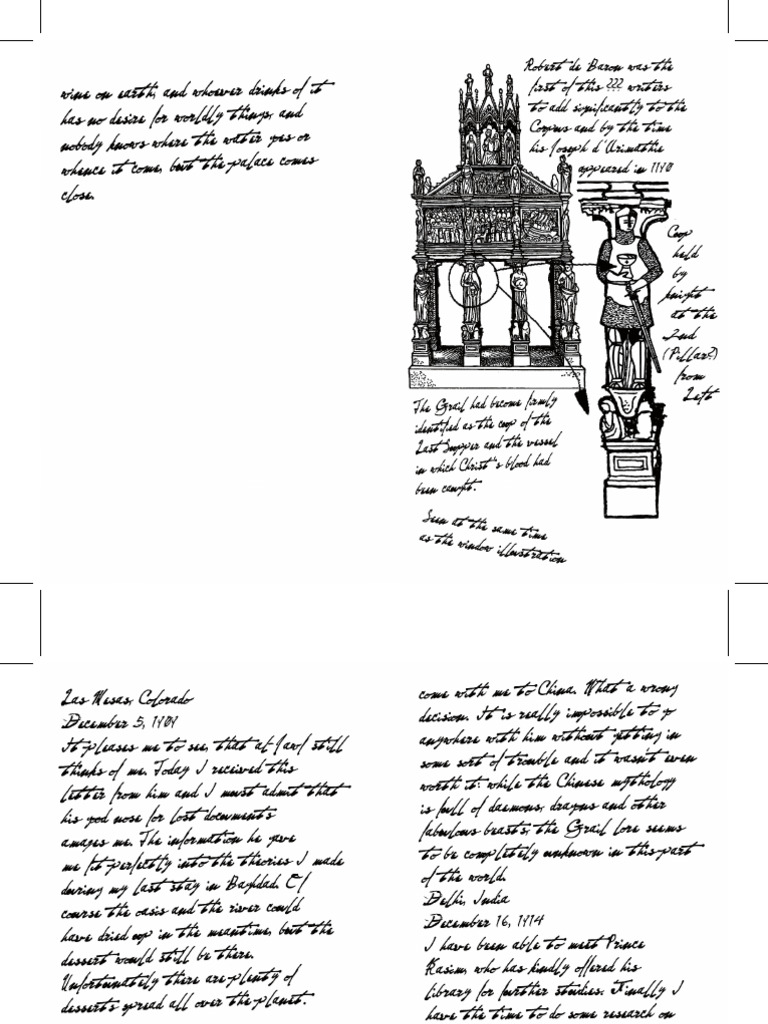 wine on earth, and whoever drinks of it
has no desire for worldly things, and
nobody knows where the water goes or
whence it come, but the palace comes
close.
Robert de Baron was the
first of this ??? writers
to add significantly to the
Corpus and by the time
his Joseph d'Arimathie
appeared in 1190
Coop
held
by
knight
at the
2nd
(Pillar?)
from
Left
The Grail had become firmly
identified as the coop of the
Last Supper and the vessel
in which Christ's blood had
been caught.
Seen at the same time
as the window illustration
Las Mesas, Colorado
December 5, 1909
It pleases me to see, that at Jawf still
thinks of me. Today I received this
letter from him and I must admit that
his god nose for lost documents
amazes me. The information he gave
me fit perfectly into the theories I made
during my last stay in Baghdad. Of
course the oasis and the river could
have dried up in the meantime, but the
dessert would still be there.
Unfortunately there are plenty of
desserts spread all over the planet.
come with me to China. What a wrong
decision. It is really impossible to go
anywhere with him without getting in
some sort of trouble and it wasn't even
worth it: while the Chinese mythology
is full of daemons, dragons and other
fabulous beasts, the Grail lore seems
to be completely unknown in this part
of the world.
Delhi, India
December 16, 1914
I have been able to meet Prince
Kasim, who has kindly offered his
library for further studies. Finally I
have the time to do some research on